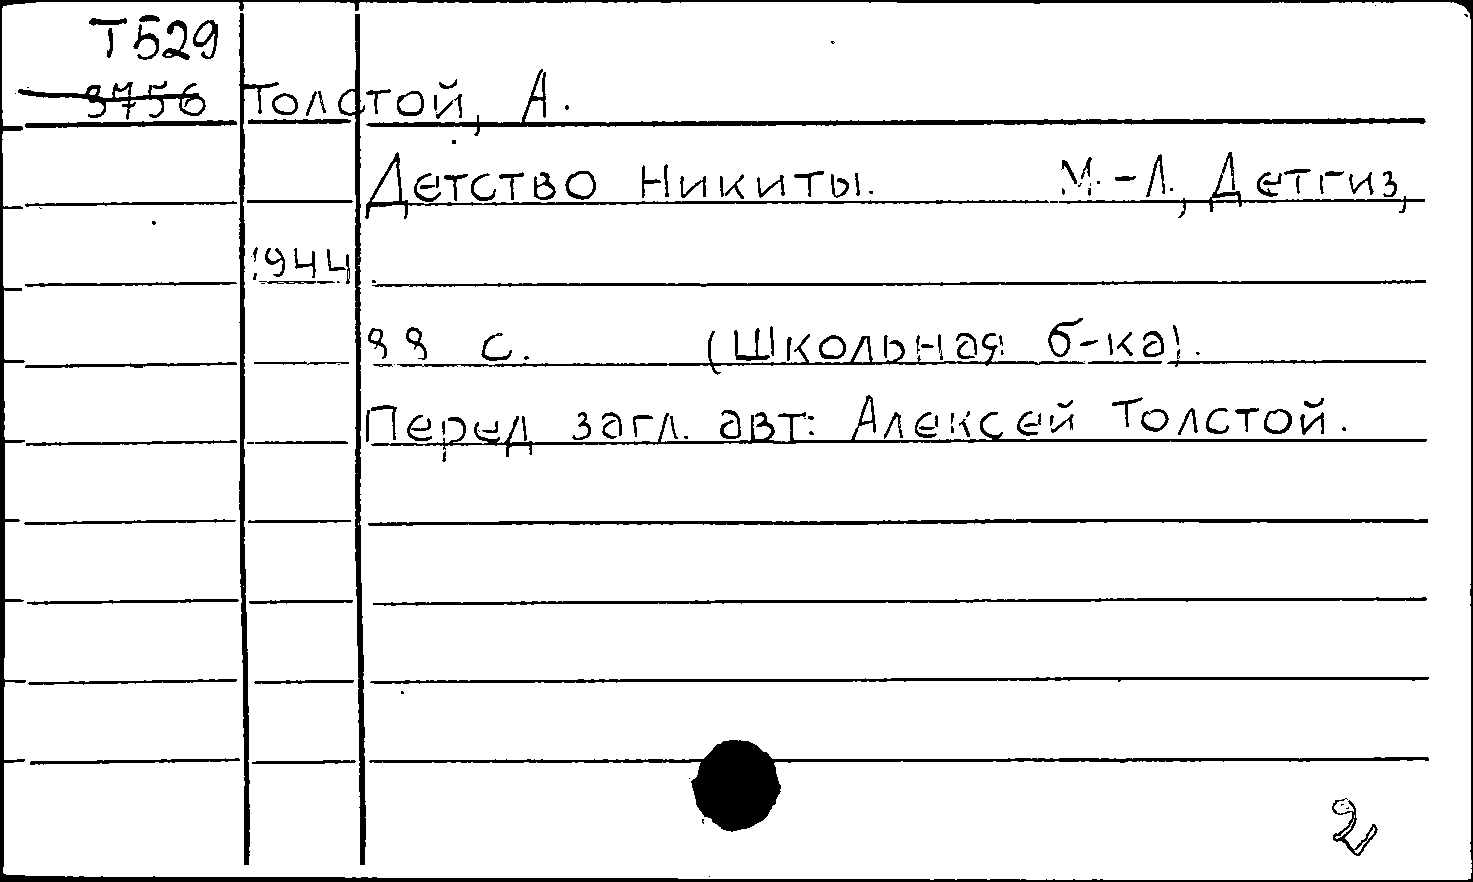 Т529
3756 Толстой, А.
Детство Никиты. М.-Л., Детгиз,
1944
88 с. (Школьная б-ка).
Перед загл. авт: Алексей Толстой.
2